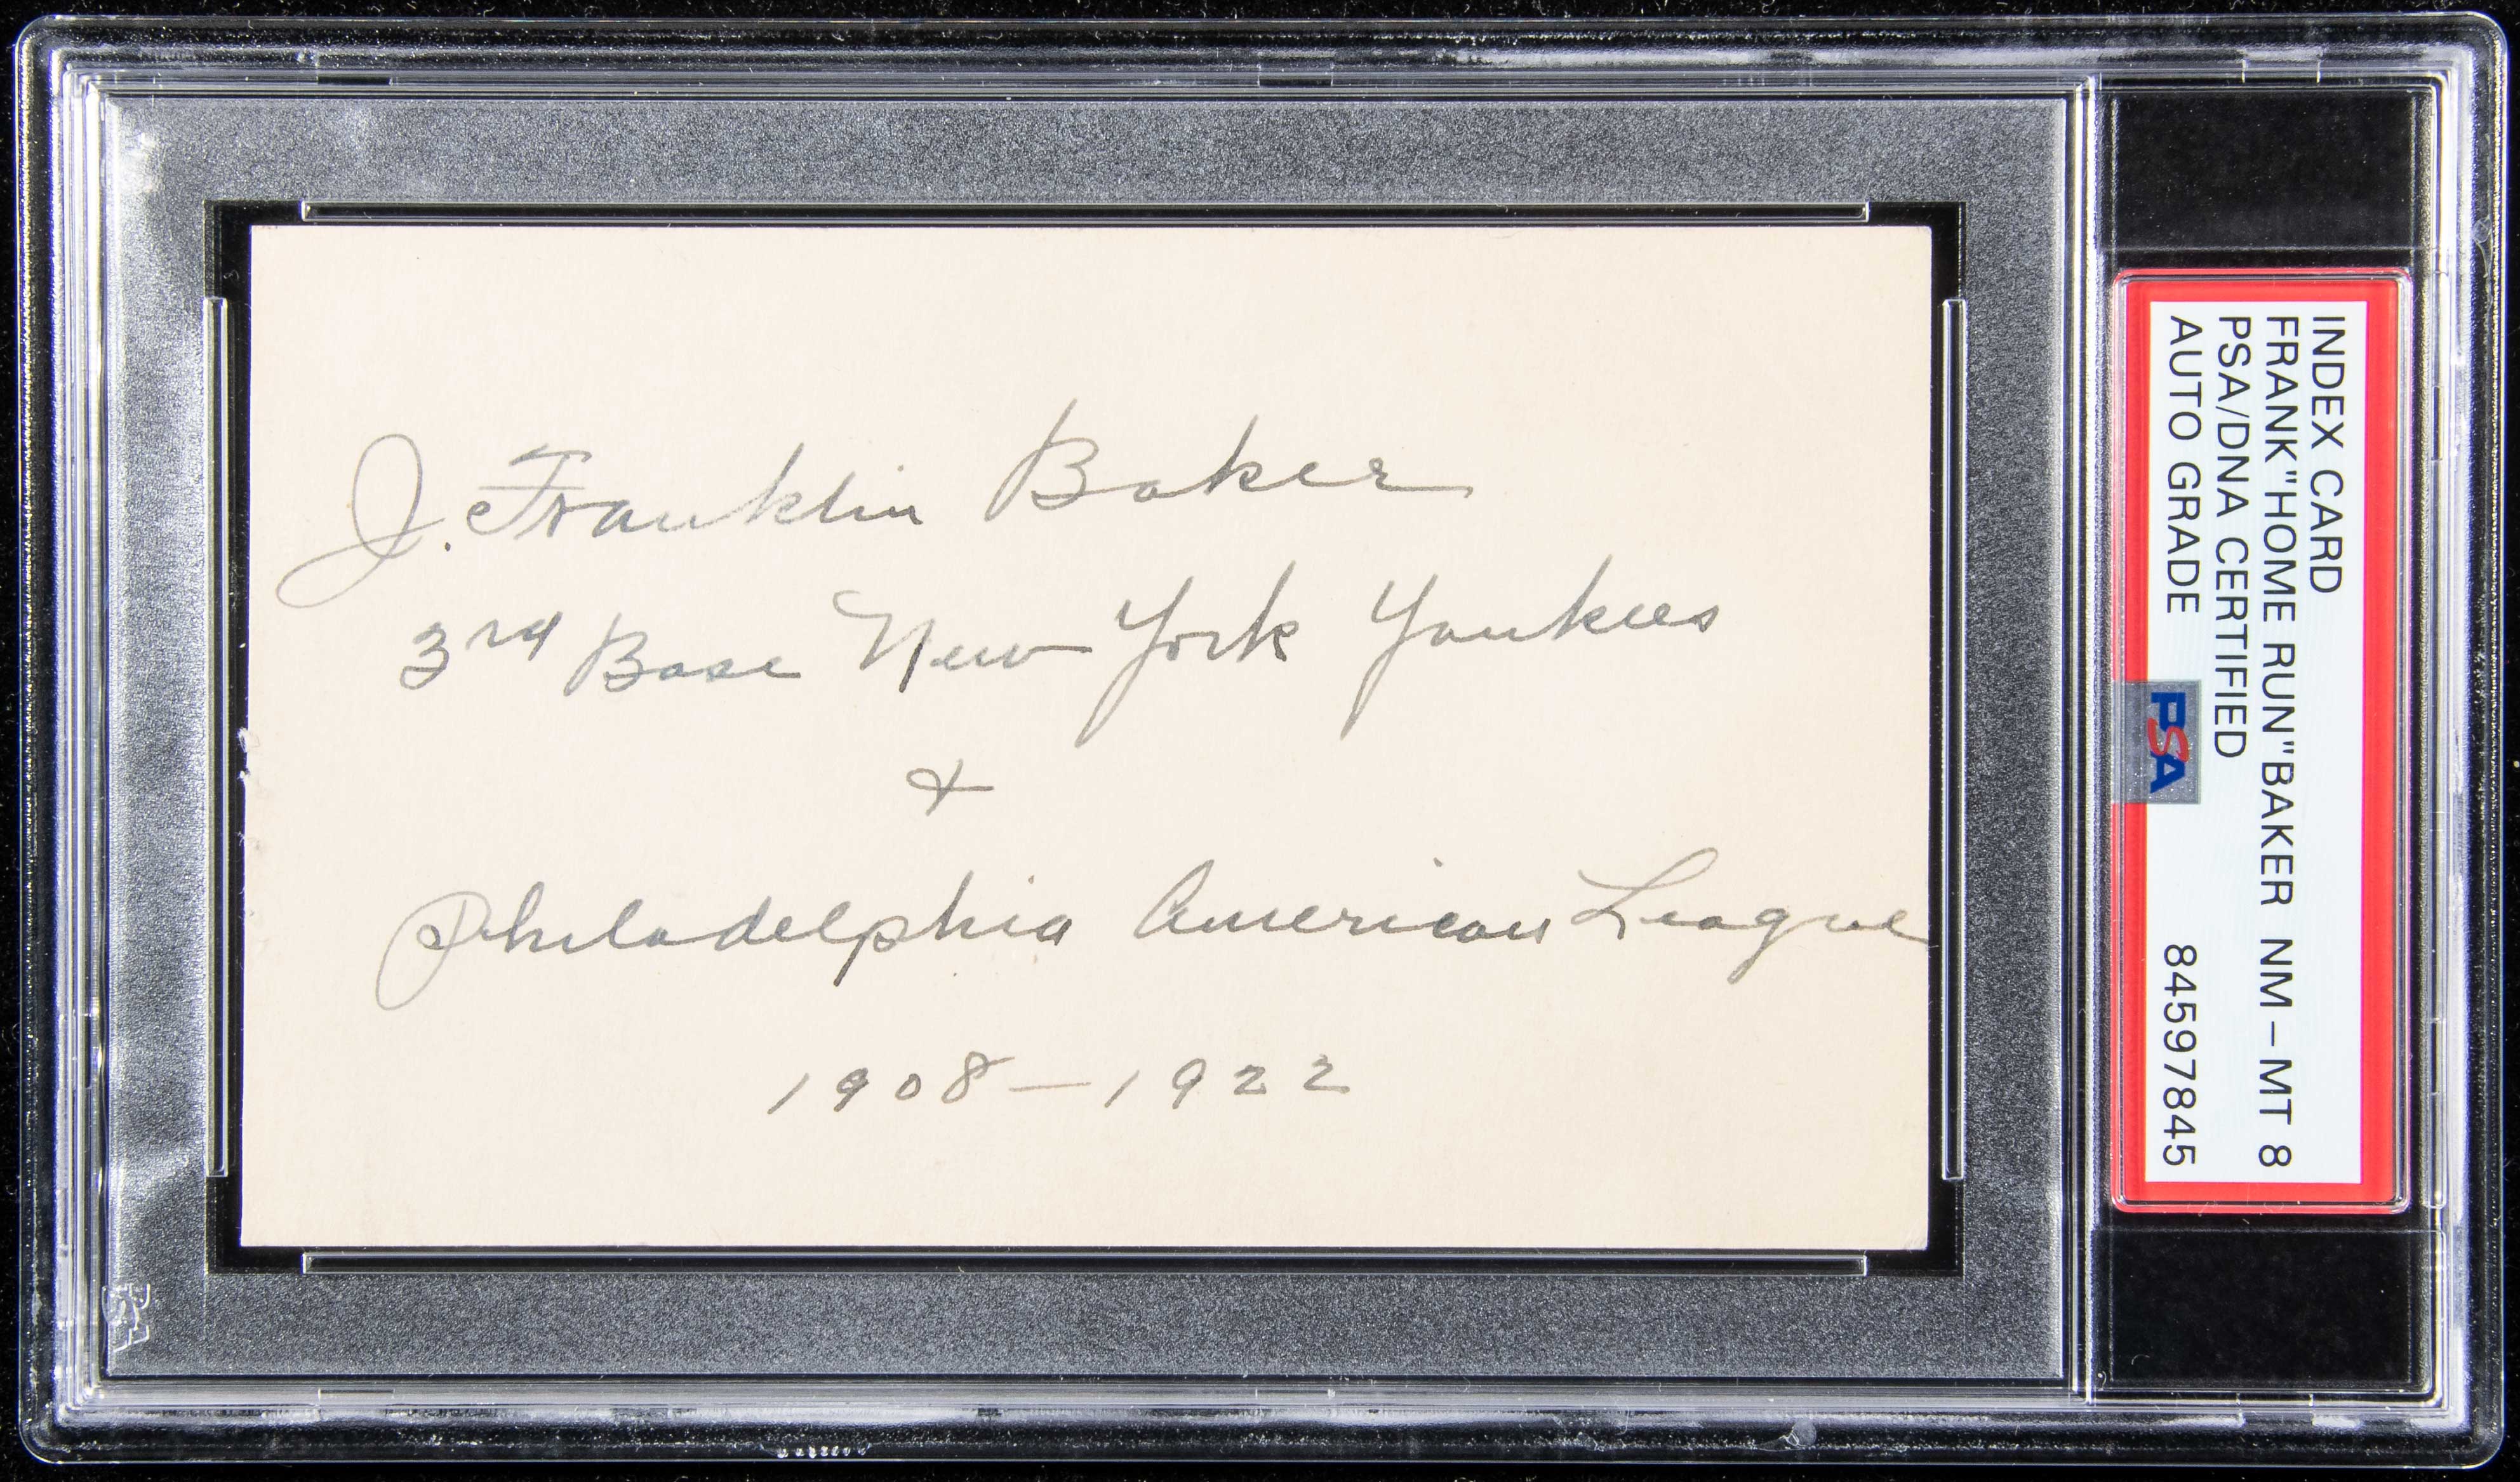 J. Franklin Baker
3rd Base New York Yankees
&
Philadelphia American League
1908 — 1922
INDEX CARD
FRANK"HOME RUN"BAKER NM-MT 8
PSA/DNA CERTIFIED
AUTO GRADE 84597845
PSA